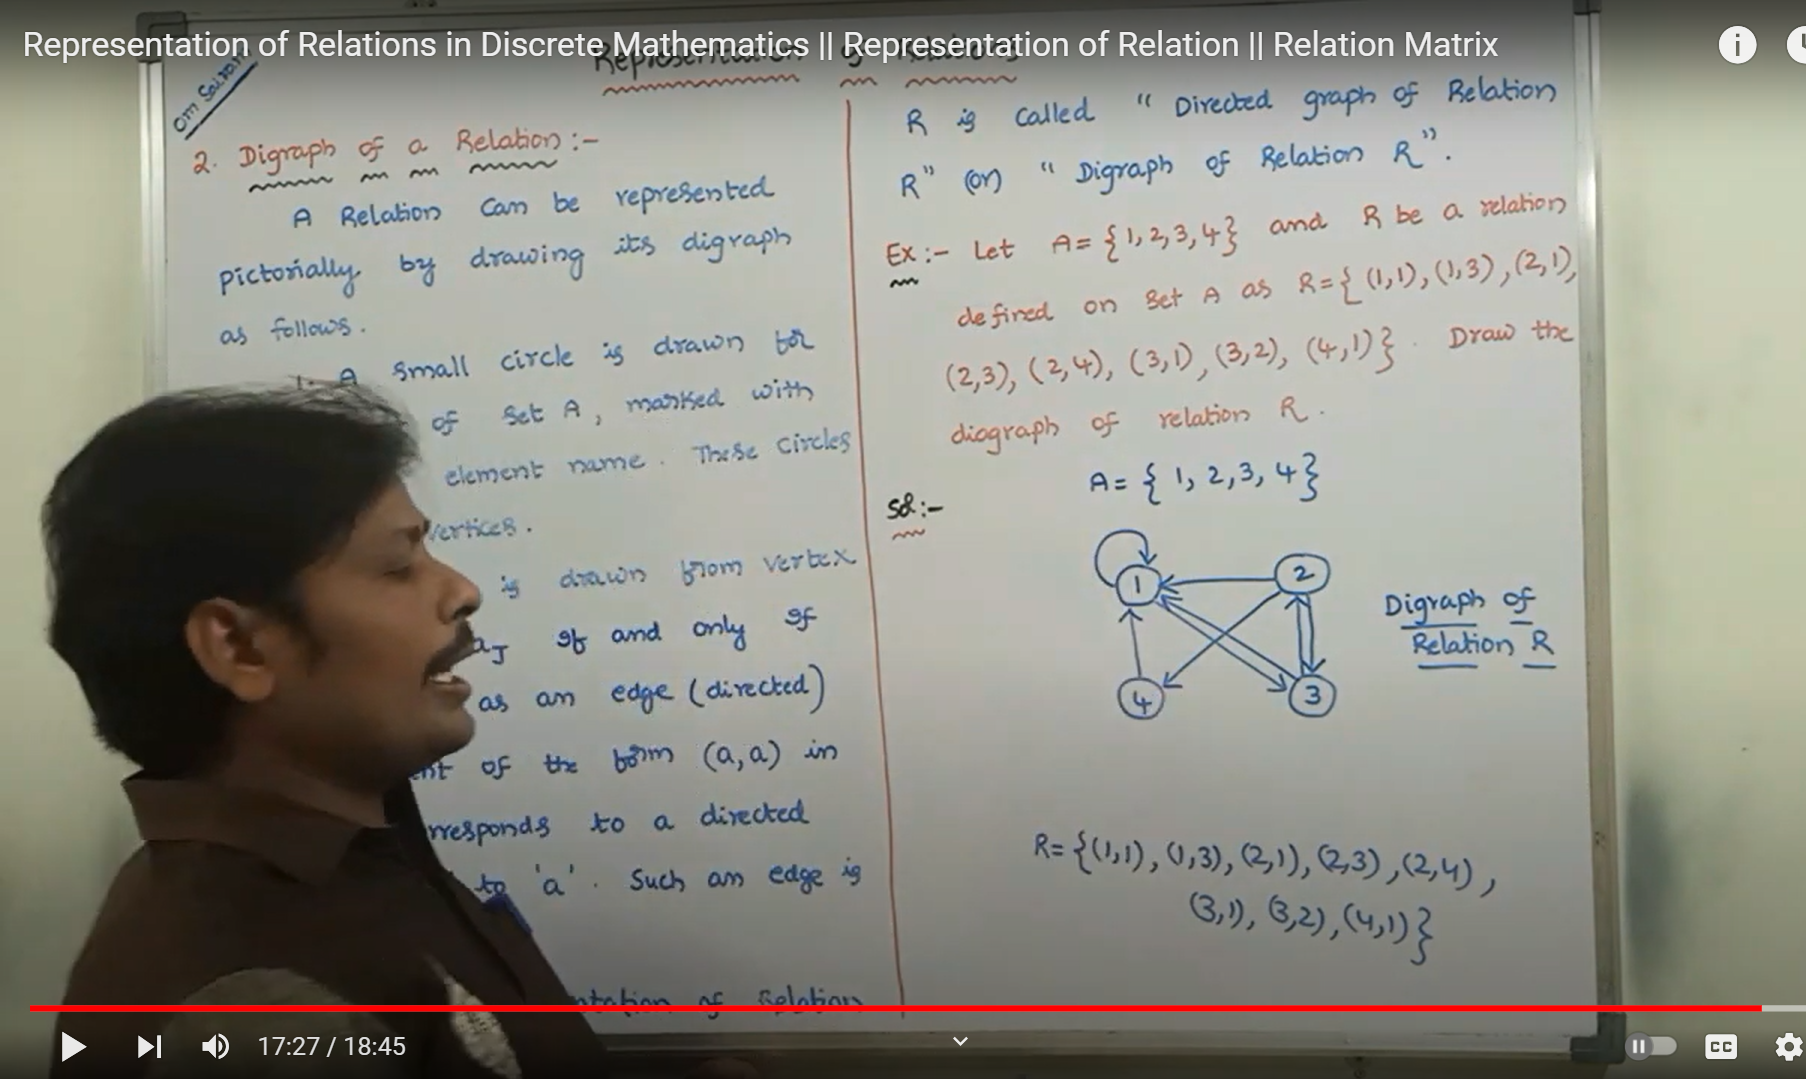 Representation of Relations in Discrete Mathematics || Representation of Relation || Relation Matrix
Om Sairam
Representation of Relations
2. Digraph of a Relation :-
A Relation can be represented
pictorially by drawing its digraph
as follows.
1. A small circle is drawn for
of Set A, marked with
element name. These Circles
vertices.
is drawn from vertex
aJ if and only if
as an edge (directed)
of the form (a,a) in
to a directed
to 'a'. Such an edge is
of Relation
R is called "Directed graph of Relation
R" (or) "Digraph of Relation R".
Ex:- Let A= {1,2,3,4} and R be a relation
defined on set A as R={ (1,1), (1,3), (2,1),
(2,3), (2,4), (3,1), (3,2), (4,1)}. Draw the
diagraph of relation R.
A= { 1, 2, 3, 4 }
Sol:-
1
2
4
3
Digraph of
Relation R
R= {(1,1), (1,3), (2,1), (2,3), (2,4),
(3,1), (3,2), (4,1)}
17:27 / 18:45
CC